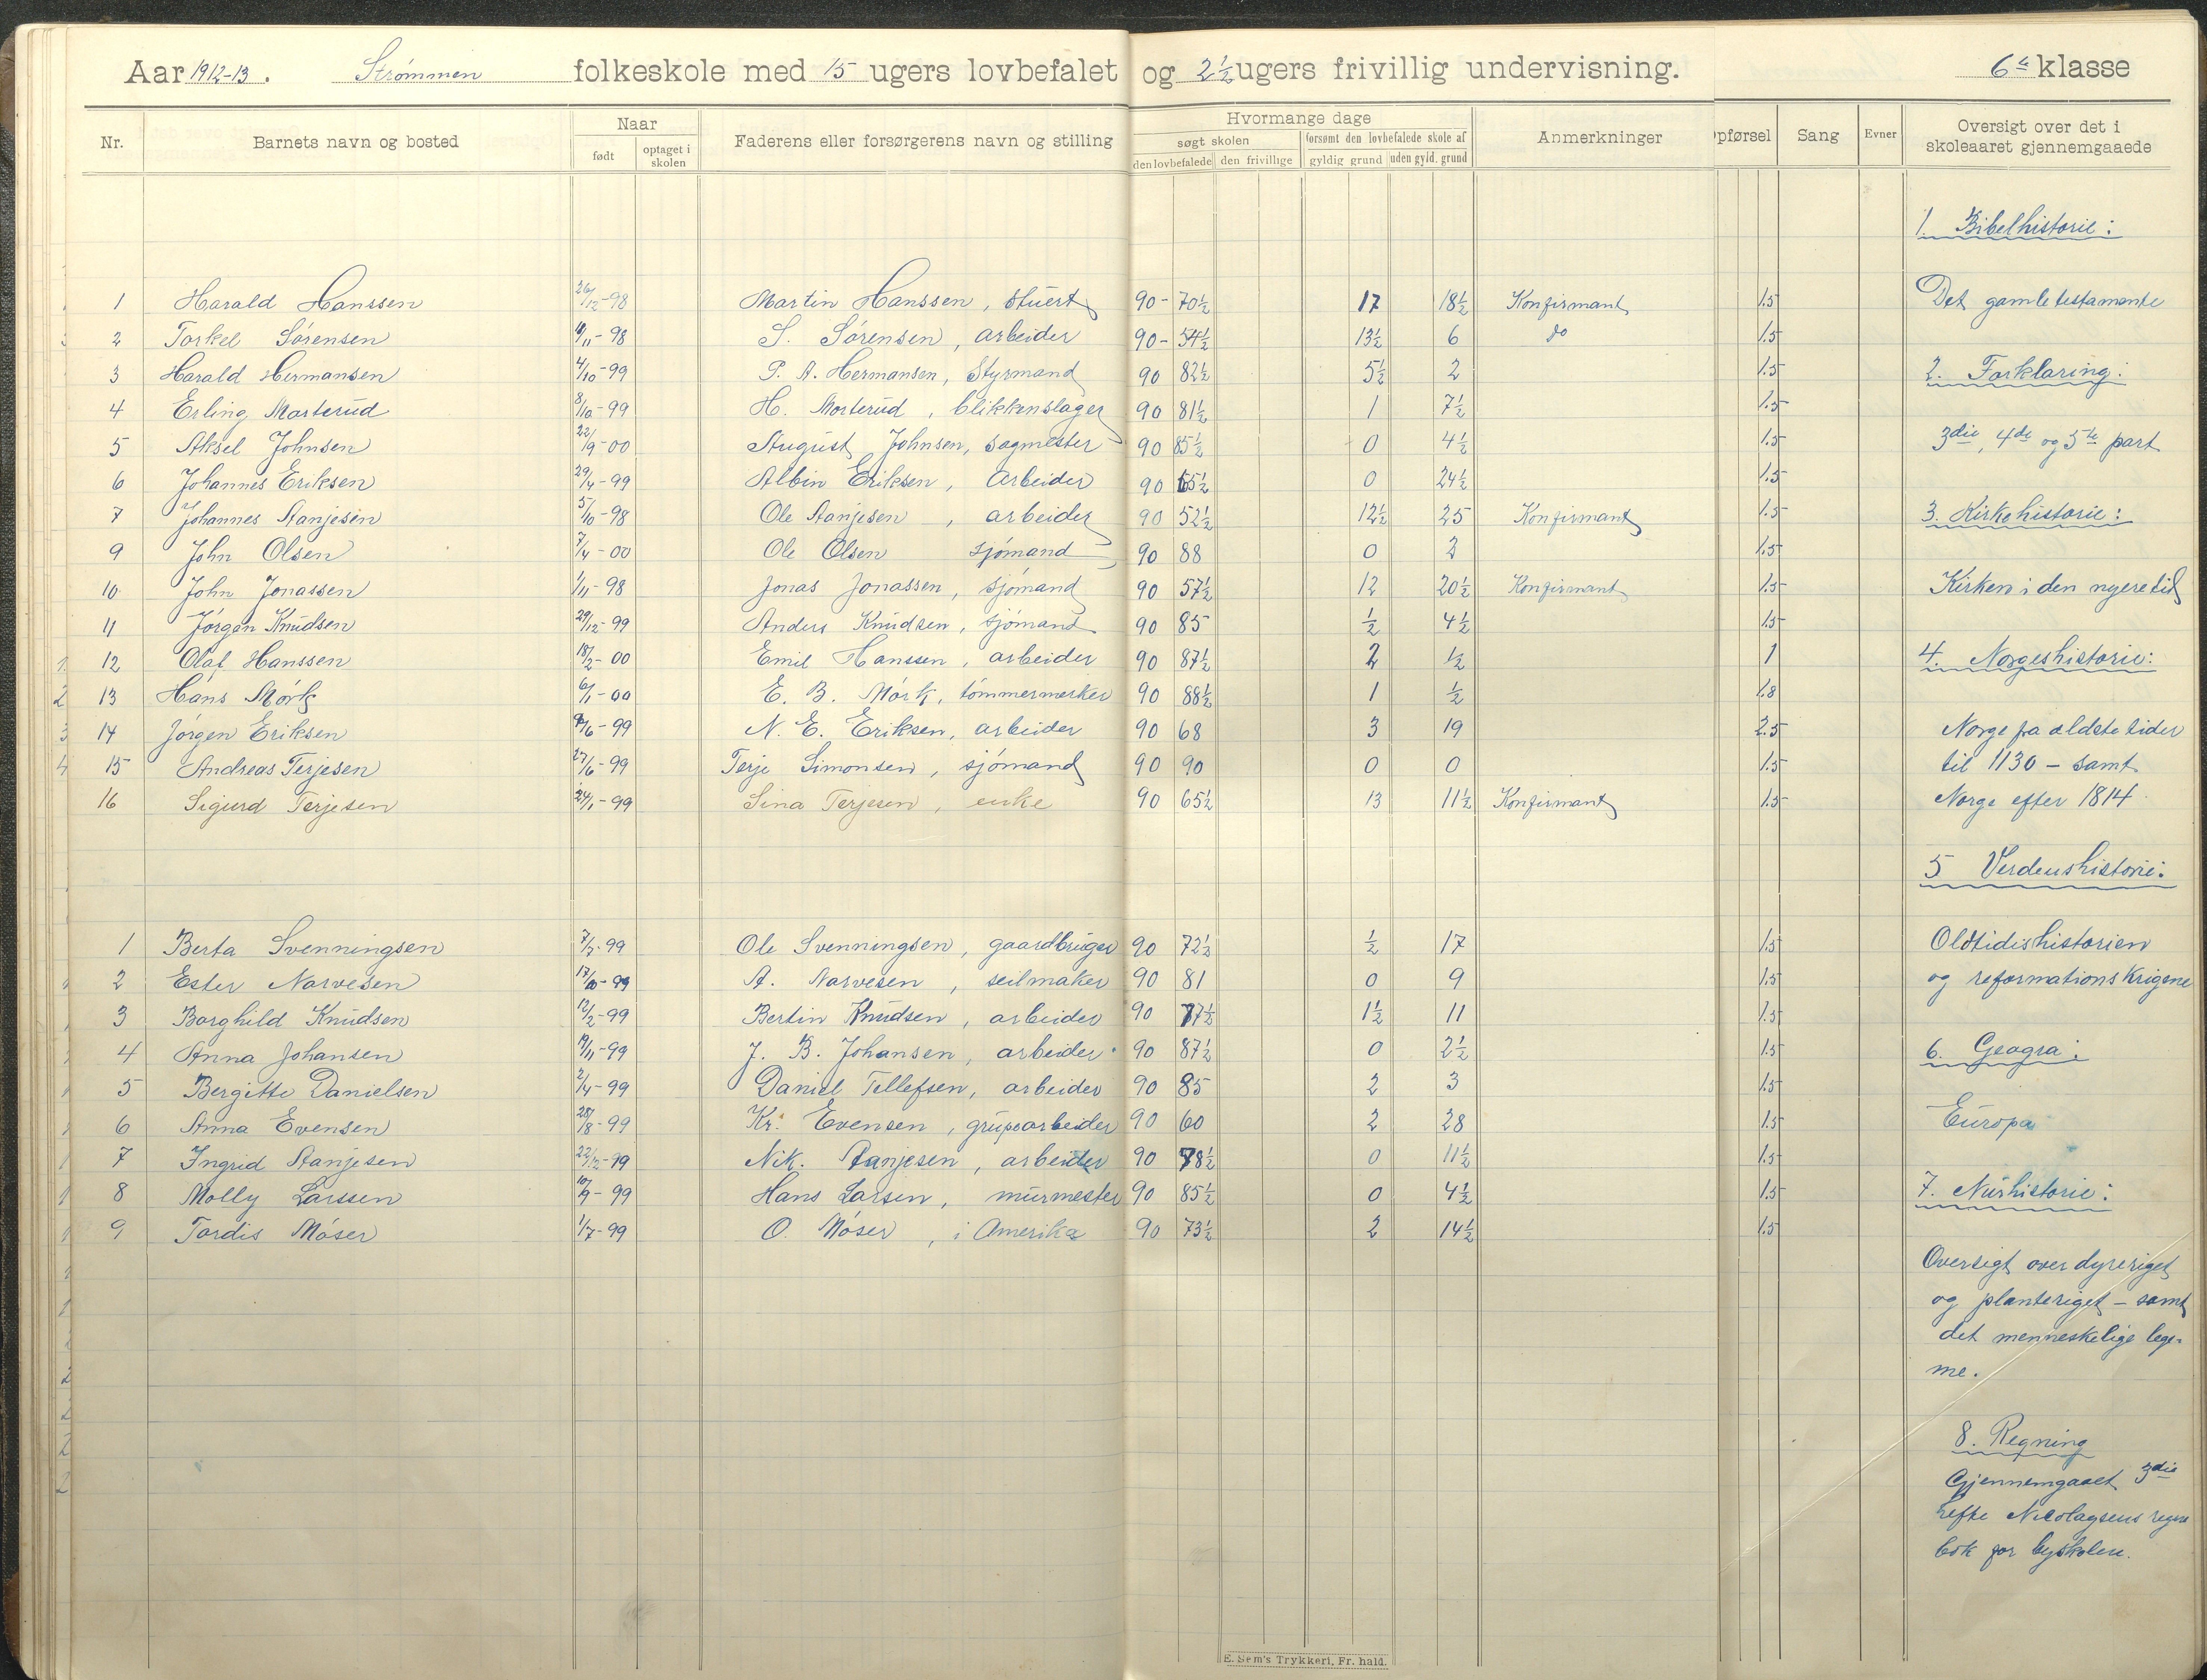 Aar 1912-13. Strømmen folkeskole med 15 ugers lovbefalet og 2½ ugers frivillig undervisning. 6te klasse
Nr. Barnets navn og bosted Naar Faderens eller forsørgerens navn og stilling Hvormange dage Anmerkninger Opførsel Sang Evner Oversigt over det i skoleaaret gjennemgaaede
født optaget i skolen søgt skolen forsømt den lovbefalede skole af
den lovbefalede den frivillige gyldig grund uden gyld. grund
1. Bibelhistorie:
1 Harald Hanssen 26/12-98 Martin Hanssen, stuert 90- 70½ 17 18½ Konfirmant 1.5 Det gamle testamente
2 Torkel Sørensen 11/11-98 S. Sørensen, arbeider 90- 54½ 13½ 6 do 1.5
3 Harald Hermansen 4/10-99 P. A. Hermansen, Styrmand 90 82½ 5½ 2 1.5 2. Forklaring:
4 Erling Morterud 8/10-99 H. Morterud, blikkenslager 90 81½ 1 7½ 1.5
5 Aksel Johnsen 22/9-00 August Johnsen, sagmester 90 85½ 0 4½ 1.5 3die, 4de og 5te part
6 Johannes Eriksen 29/4-99 Albin Eriksen, Arbeider 90 65½ 0 24½ 1.5
7 Johannes Aanjesen 5/10-98 Ole Aanjesen, arbeider 90 52½ 12½ 25 Konfirmant 1.5 3. Kirkehistorie:
9 John Olsen 7/4-00 Ole Olsen sjømand 90 88 0 2 1.5
10 John Jonassen 1/11-98 Jonas Jonassen, sjømand 90 57½ 12 20½ Konfirmant 1.5 Kirken i den nyere tid
11 Jørgen Knudsen 29/12-99 Anders Knudsen, sjømand 90 85 ½ 4½ 1.5
12 Olaf Hanssen 18/2-00 Emil Hanssen, arbeider 90 87½ 2 ½ 1 4. Norgeshistorie:
13 Hans Mørk 6/1-00 E. B. Mørk, tømmermerker 90 88½ 1 ½ 1.8
14 Jørgen Eriksen /6-99 N. E. Eriksen, arbeider 90 68 3 19 2.5 Norge fra ældste tider
15 Andreas Terjesen 27/6-99 Terje Simonsen, sjømand 90 90 0 0 1.5 til 1130 - samt
16 Sigurd Terjesen 24/1-99 Sina Terjesen, enke 90 65½ 13 11½ Konfirmant 1.5 Norge efter 1814.
5 Verdenshistorie:
1 Berta Svenningsen 7/7-99 Ole Svenningsen, gaardbruger 90 72½ ½ 17 1.5 Oldtidishistorien
2 Ester Narvesen 17/10-99 A. Narvesen, seilmaker 90 81 0 9 1.5 og reformationskrigene
3 Borghild Knudsen 12/2-99 Bertin Knudsen, arbeider 90 77½ 1½ 11 1.5
4 Anna Johansen 19/11-99 J. B. Johansen, arbeider. 90 87½ 0 2½ 1.5 6. Geogra:
5 Bergitte Danielsen 2/4-99 Daniel Tellefsen, arbeider 90 85 2 3 1.5
6 Anna Evensen 28/8-99 Kr. Evensen, grubearbeider 90 60 2 28 1.5 Europa
7 Ingrid Aanjesen 22/12-99 Nik. Aanjesen, arbeider 90 78½ 0 11½ 1.5
8 Molly Larssen 10/9-99 Hans Larsen, murmester 90 85½ 0 4½ 1.5 7. Nurhistorie:
9 Tordis Møser 1/7-99 O. Møser, i Amerika 90 73½ 2 14½ 1.5
Oversigt over dyreriget
og planteriget - samt
det menneskelige lege-
me.
8. Regning
Gjennemgaaet 3die
hefte Nicolaysens regne
bok for byskolen.
E. Sem's Trykkeri, Fr. hald.